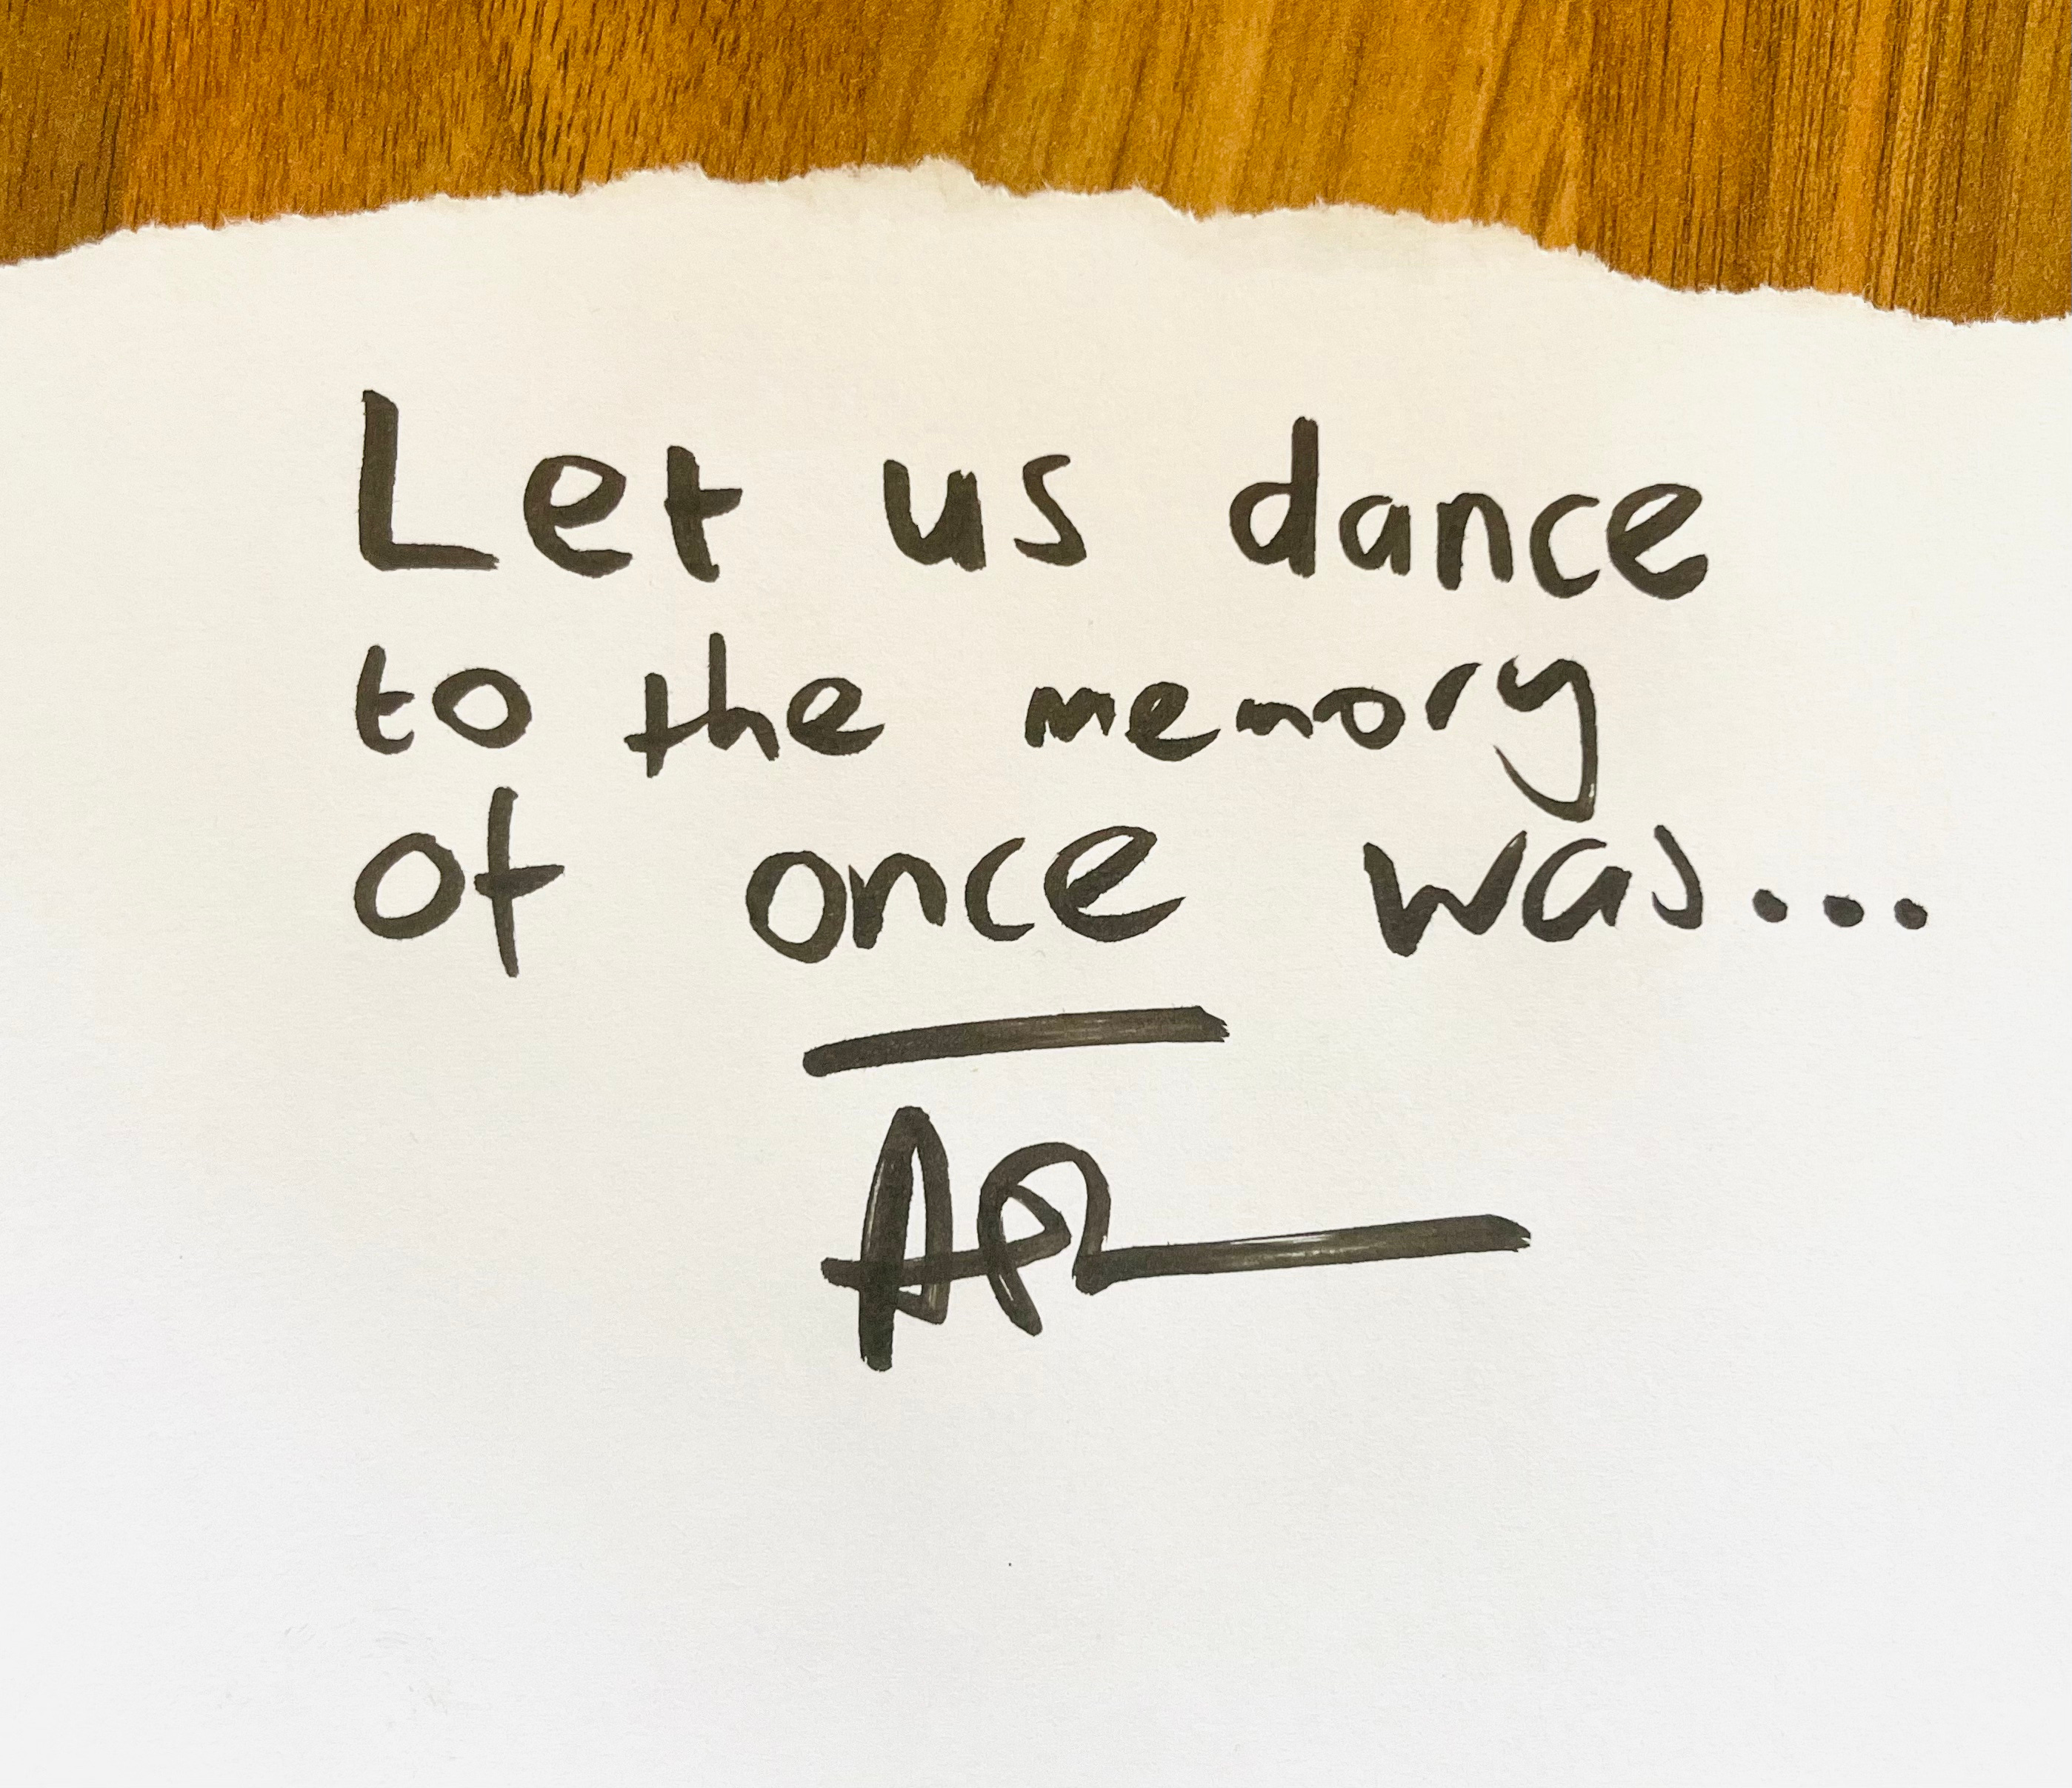 Let us dance
to the memory
of once was...